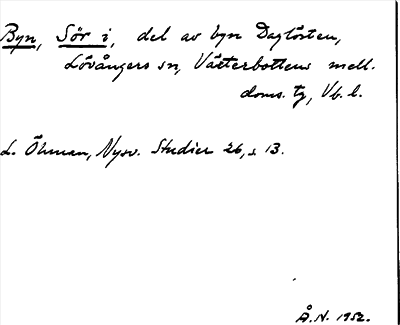 Byn, Sör i, del av byn Daglösten,
Lövångers sn, Västerbottens mell.
doms. tg, Vb. l.
L. Öhman, Nysv. Studier 26, s 13.
Å.N. 1952.